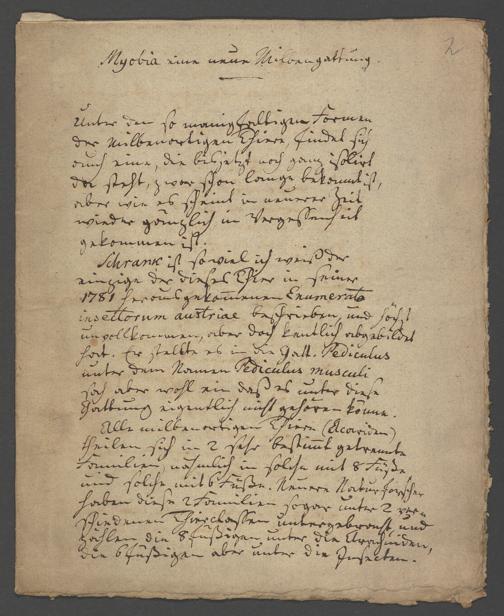 2
Myobia eine neue Milbengattung.
Unter den so manigfaltigen Formen
der Milbenartigen Thiere, findet sich
auch eine, die bis jetzt noch ganz isolirt
da steht, zwar schon lange bekannt ist,
aber wie es scheint in neuerer Zeit
wieder gänzlich in Vergessenheit
gekommen ist.
Schrank ist soviel ich weiß der
einzige der dieses Thier in seiner
1781 herausgekommenen Enumeratio
insectorum austriae beschrieben, und höchst
unvollkommen, aber doch kentlich abgebildet
hat. Er stellte es in die Gatt. Pediculus
unter dem Namen Pediculus musculi
sah aber wohl ein daß es unter diese
Gattung eigentlich nicht gehören könne.
Alle milbenartigen Thiere (Acariden)
theilen sich in 2 sehr bestimmt getrennte
Familien, nähmlich in solche mit 8 Füße
und solche mit 6 Füße. Neuere Naturforscher
haben diese 2 Familien sogar unter 2 ver-
schiedenen Thierclassen untergebracht, und
zählen die 8 füßigen unter die Arachniden,
die 6 füßigen aber unter die Insecten.